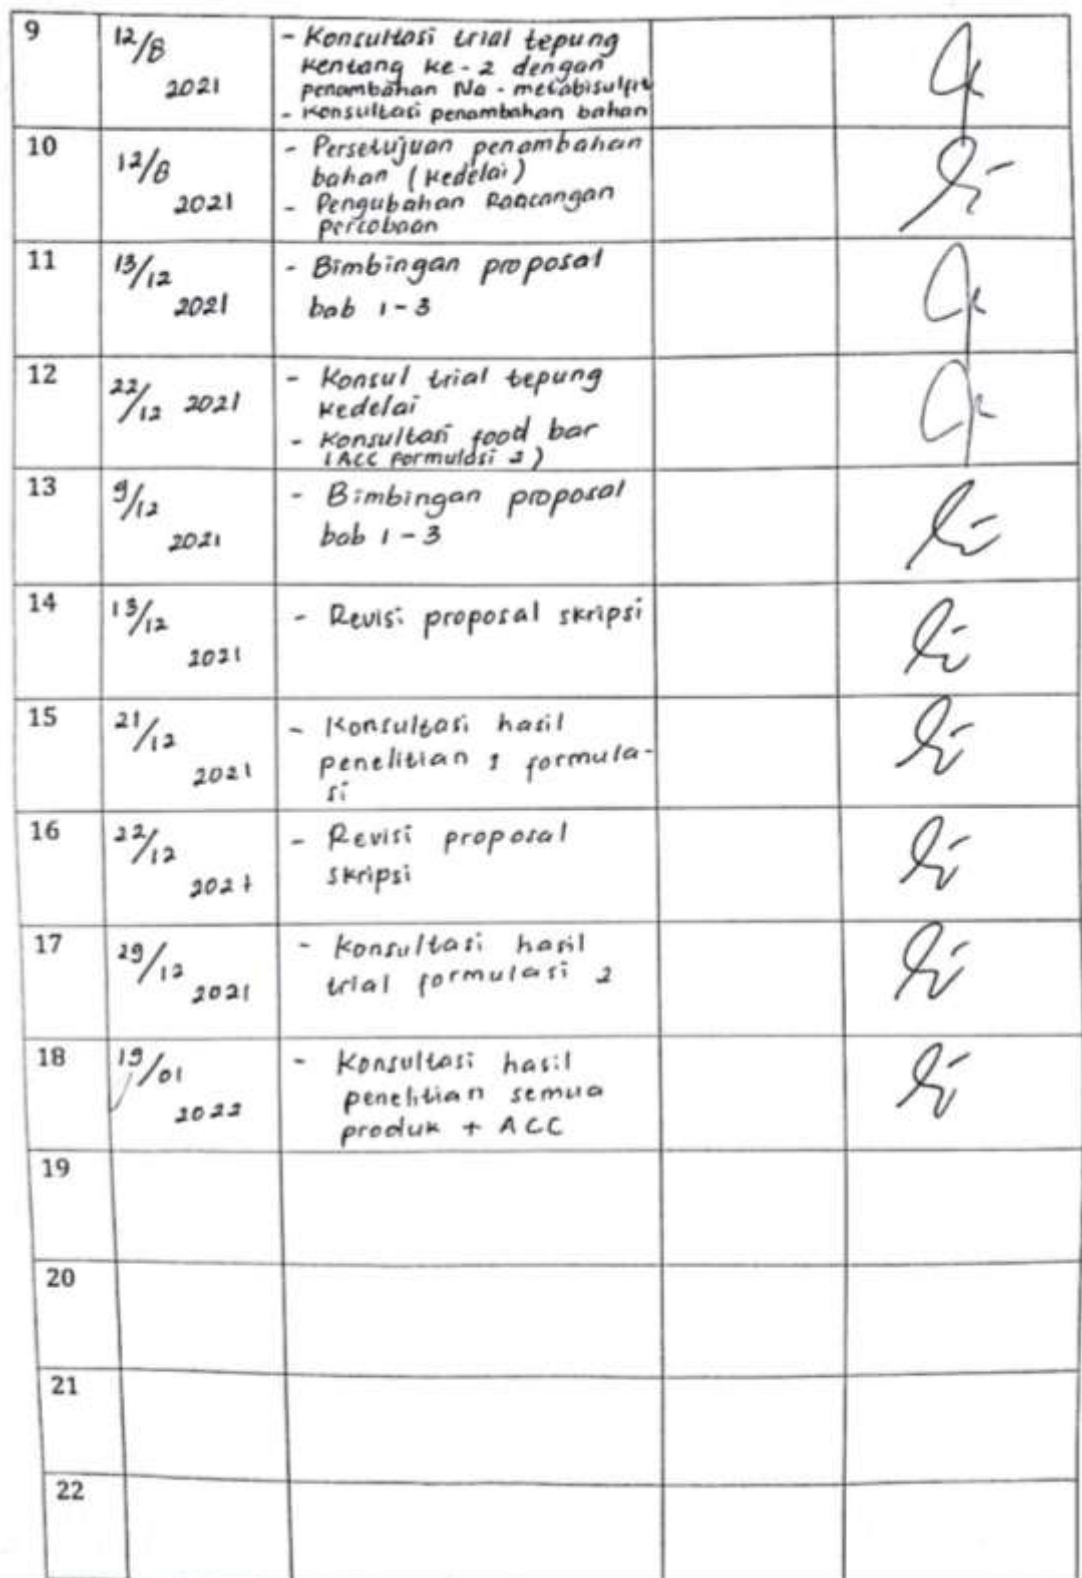 9
12/8
2021
- Konsultasi trial tepung
kentang ke-2 dengan
penambahan Na-metabisulfit
- Konsultasi penambahan bahan
10
12/8
2021
- Persetujuan penambahan
bahan (kedelai)
- Pengubahan Rancangan
percobaan
11
13/12
2021
- Bimbingan proposal
bab 1-3
12
22/12 2021
- Konsul trial tepung
kedelai
- Konsultasi food bar
(ACC Formulasi 2)
13
9/12
2021
- Bimbingan proposal
bab 1-3
14
13/12
2021
- Revisi proposal skripsi
15
21/12
2021
- Konsultasi hasil
penelitian 1 formula-
si
16
22/12
2021
- Revisi proposal
skripsi
17
29/12
2021
- Konsultasi hasil
trial formulasi 2
18
19/01
2022
- Konsultasi hasil
penelitian semua
produk + ACC
19
20
21
22